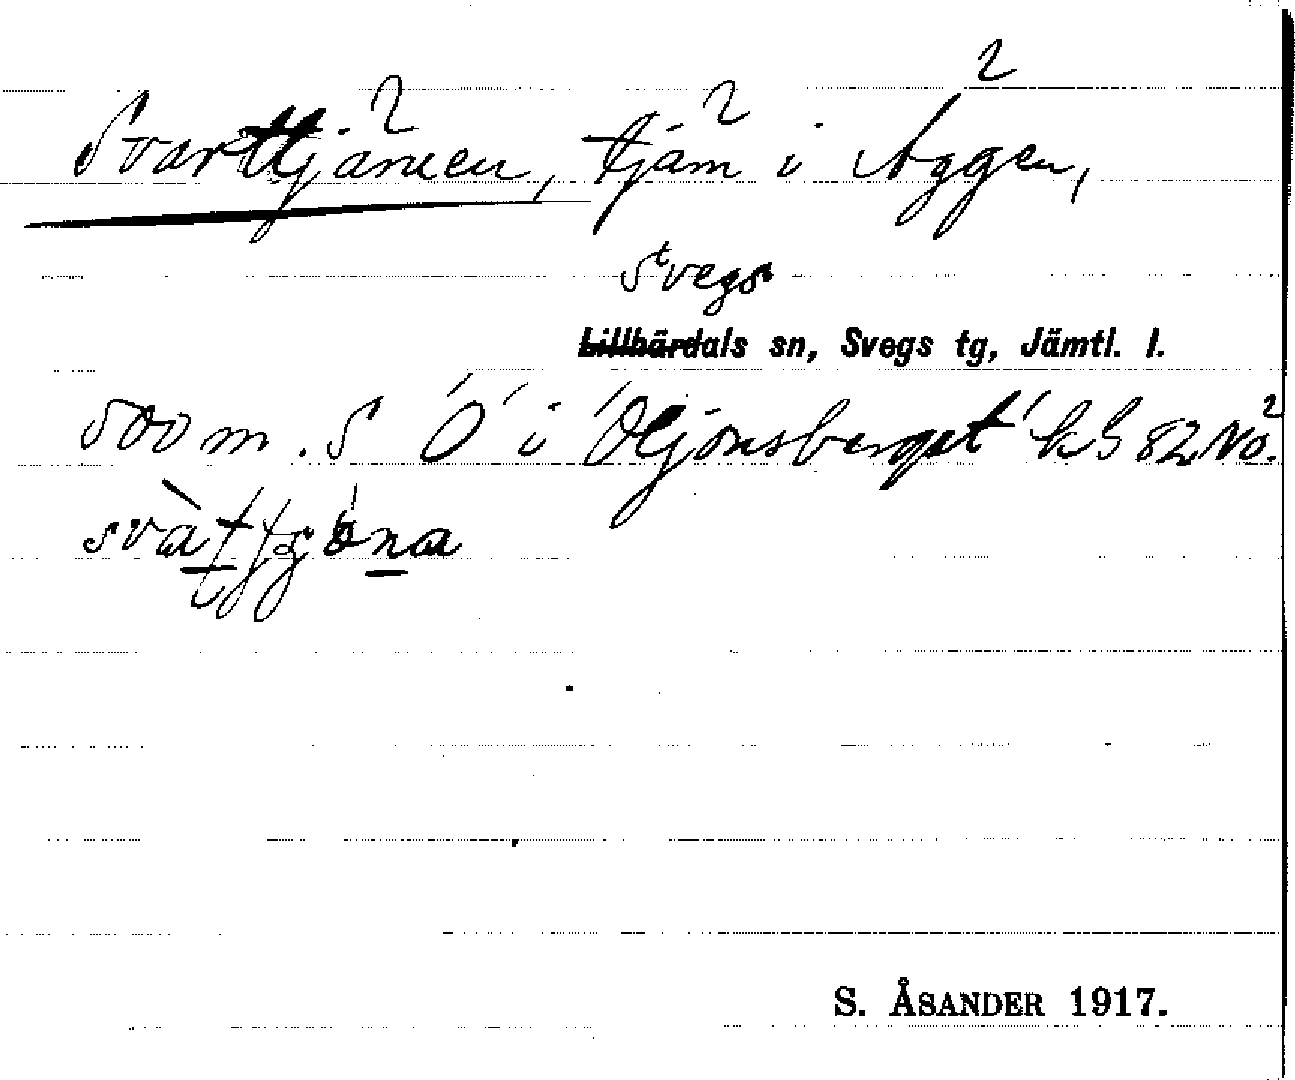 Svarttjärnen, tjärn i Äggen,
Svegs
Lillhärdals sn, Svegs tg, Jämtl. l.
500 m. S "O" i "Oljonsberget" kS 82 NO.
S. ÅSANDER 1917.